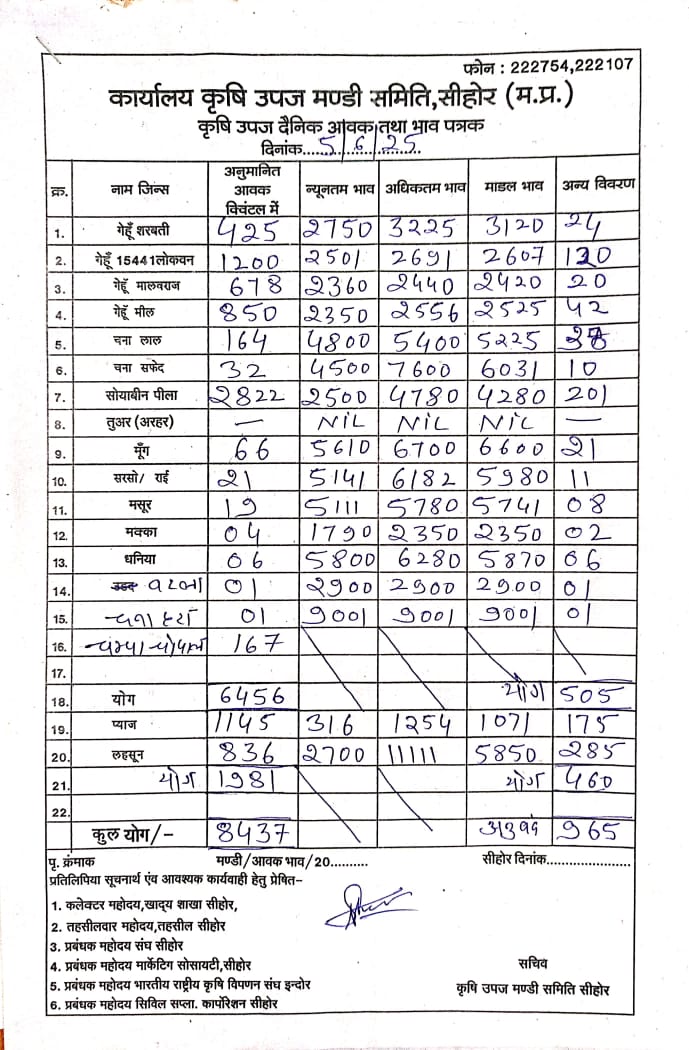 फोन : 222754,222107
कार्यालय कृषि उपज मण्डी समिति,सीहोर (म.प्र.)
कृषि उपज दैनिक आवक तथा भाव पत्रक
दिनांक.....5/6/25......
क्र. नाम जिन्स अनुमानित आवक क्विंटल में न्यूनतम भाव अधिकतम भाव माडल भाव अन्य विवरण
1. गेहूँ शरबती 425 2750 3225 3120 24
2. गेहूँ 15441लोकवन 1200 2501 2691 2607 120
3. गेहूँ मालवराज 678 2360 2440 2420 20
4. गेहूँ मील 850 2350 2556 2525 42
5. चना लाल 164 4800 5400 5225
6. चना सफेद 32 4500 7600 6031 10
7. सोयाबीन पीला 2822 2500 4780 4280 201
8. तुअर (अरहर) — NIL NIL NIL —
9. मूँग 66 5610 6700 6600 21
10. सरसो/ राई 21 5141 6182 5980 11
11. मसूर 19 5111 5780 5741 08
12. मक्का 04 1790 2350 2350 02
13. धनिया 06 5800 6280 5870 06
14. बटला 01 2900 2900 2900 01
15. चना 01 9001 9001 9001 01
16. 167
17.
18. योग 6456 योग 505
19. प्याज 1145 316 1254 1071 175
20. लहसून 836 2700 11111 5850 285
21. योग 1981 योग 460
22.
कुल योग/- 8437 965
पृ. क्रंमाक मण्डी/आवक भाव/20.......... सीहोर दिनांक......................
प्रतिलिपिया सूचनार्थ एंव आवश्यक कार्यवाही हेतु प्रेषित–
1. कलेक्टर महोदय,खाद्य शाखा सीहोर,
2. तहसीलदार महोदय,तहसील सीहोर
3. प्रबंधक महोदय संघ सीहोर
4. प्रबंधक महोदय मार्केटिंग सोसायटी,सीहोर
5. प्रबंधक महोदय भारतीय राष्ट्रीय कृषि विपणन संघ इन्दोर
6. प्रबंधक महोदय सिविल सप्ला. कार्पोरेशन सीहोर
सचिव
कृषि उपज मण्डी समिति सीहोर